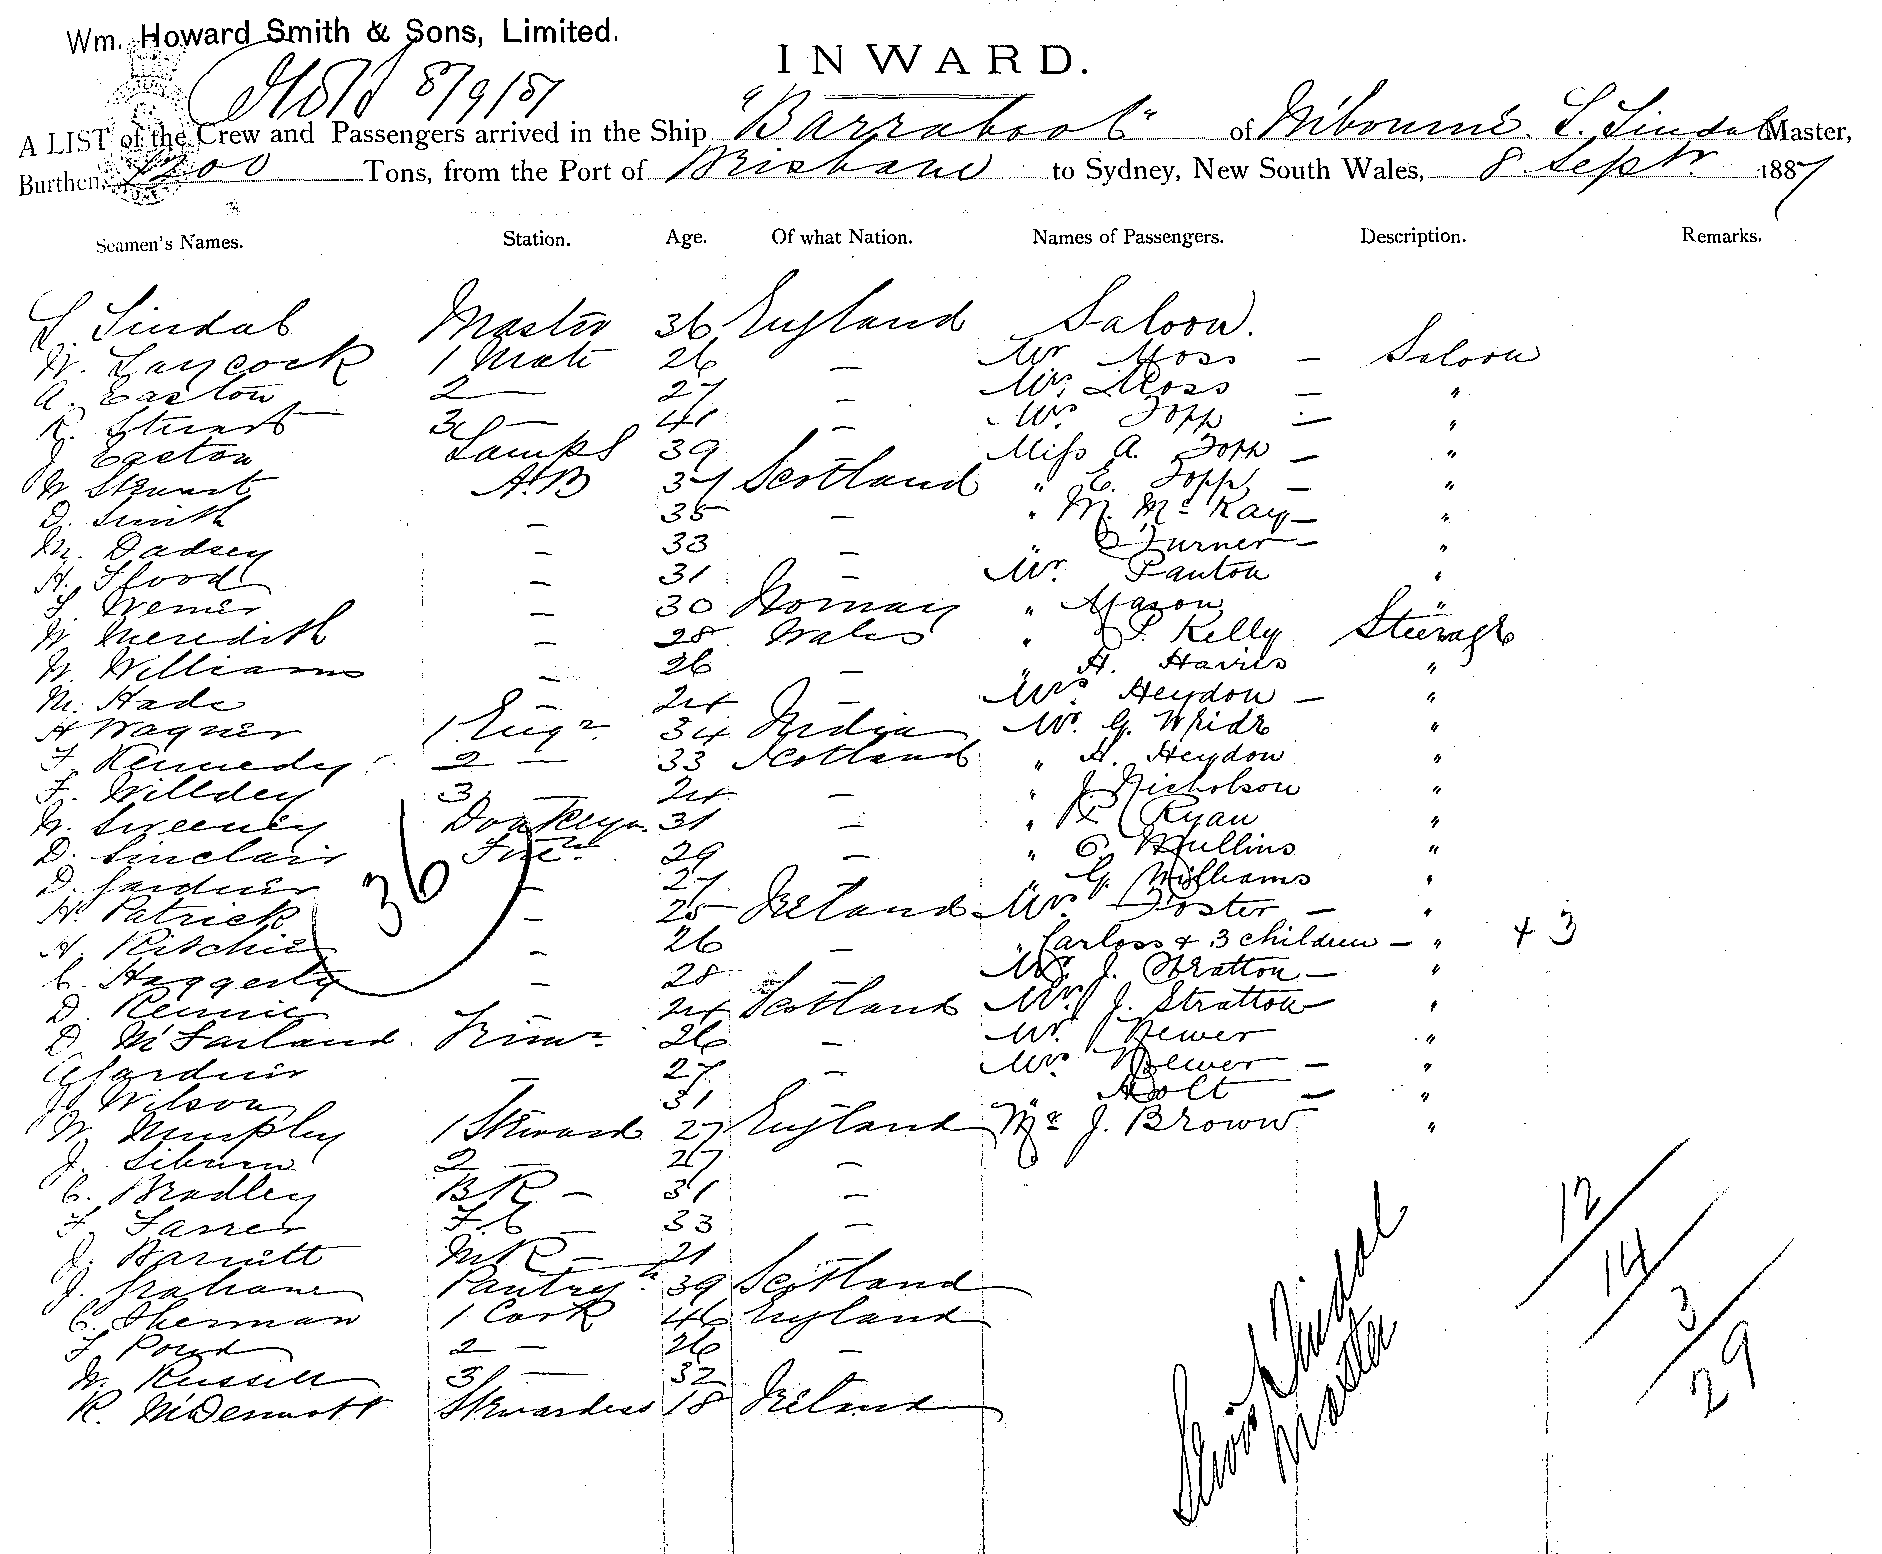 Wm. Howard Smith & Sons, Limited.
INWARD.
8/9/87
A LIST of the Crew and Passengers arrived in the Ship "Barrabool" of Mlbourne. L. Lindal Master,
Burthen, 1200 Tons, from the Port of Brisbane to Sydney, New South Wales, 8 Septr 1887
Seamen's Names. Station. Age. Of what Nation. Names of Passengers. Description. Remarks.
L. Lindal Master 36 England Saloon.
W. Laycock 1 Mate 26 — Mr Moss — Saloon
A. Easton 2 — 27 — Mrs Moss — "
R. Stuart 3 — 41 — Mrs Topp — "
J. Easton Lamps 39 — Miss A. Topp — "
W. Stewart A.B 37 Scotland " E. Topp — "
D. Smith — 35 — " M. McKay — "
M. Dadsey — 33 — " Turner — "
H. Flood — 31 — Mr. Panton "
L. Werner — 30 Norway " Mason "
W. Meredith — 28 Wales " P. Kelly Steerage
W. Williams — 26 — " H. Harris "
M. Hade — 24 — Mrs Heydon — "
H Wagner 1 Engr. 34 India Mr. G. White "
F. Kennedy 2 — 33 Scotland " H. Heydon "
F. Willdey 3 — 24 — " J. Nicholson "
W. Sweeney Donkeyn. 31 — " R. Ryan "
D. Sinclair Firen 29 — " C. Mullins "
D. Gardiner — 27 " G. Williams "
H. Patrick — 25 Ireland Mrs Foster — "
A. Ritchie — 26 — " Carloss & 3 children — " + 3
C. Haggerty — 28 Mr. J. Stratton — "
D. Rennie 24 Scotland Mrs J. Stratton "
D. McFarland Trimr 26 — Mr. Hewer "
Gardiner — 27 — Mrs Hewer — "
J. Wilson 31 " Holt — "
W. Numpley 1 Steward 27 England Mr J. Brown "
J. Sibura 2 — 27 —
C. Bradley B R — 31 —
F. Farrer F. C — 33 —
J. Barnett M R — 21
J. Grahame Pantry 39 Scotland
C. Sherman 1 Cook 46 England
F. Pound 2 — 26 —
W. Russell 3 — 32
R. McDermott Stewardess 18 Ireland
36
12
14
3
29
Lindal
Master